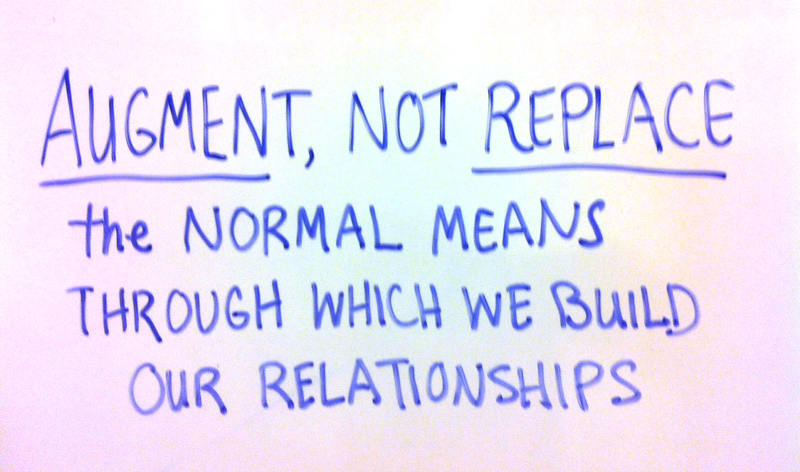 AUGMENT, NOT REPLACE
the NORMAL MEANS
THROUGH WHICH WE BUILD
OUR RELATIONSHIPS